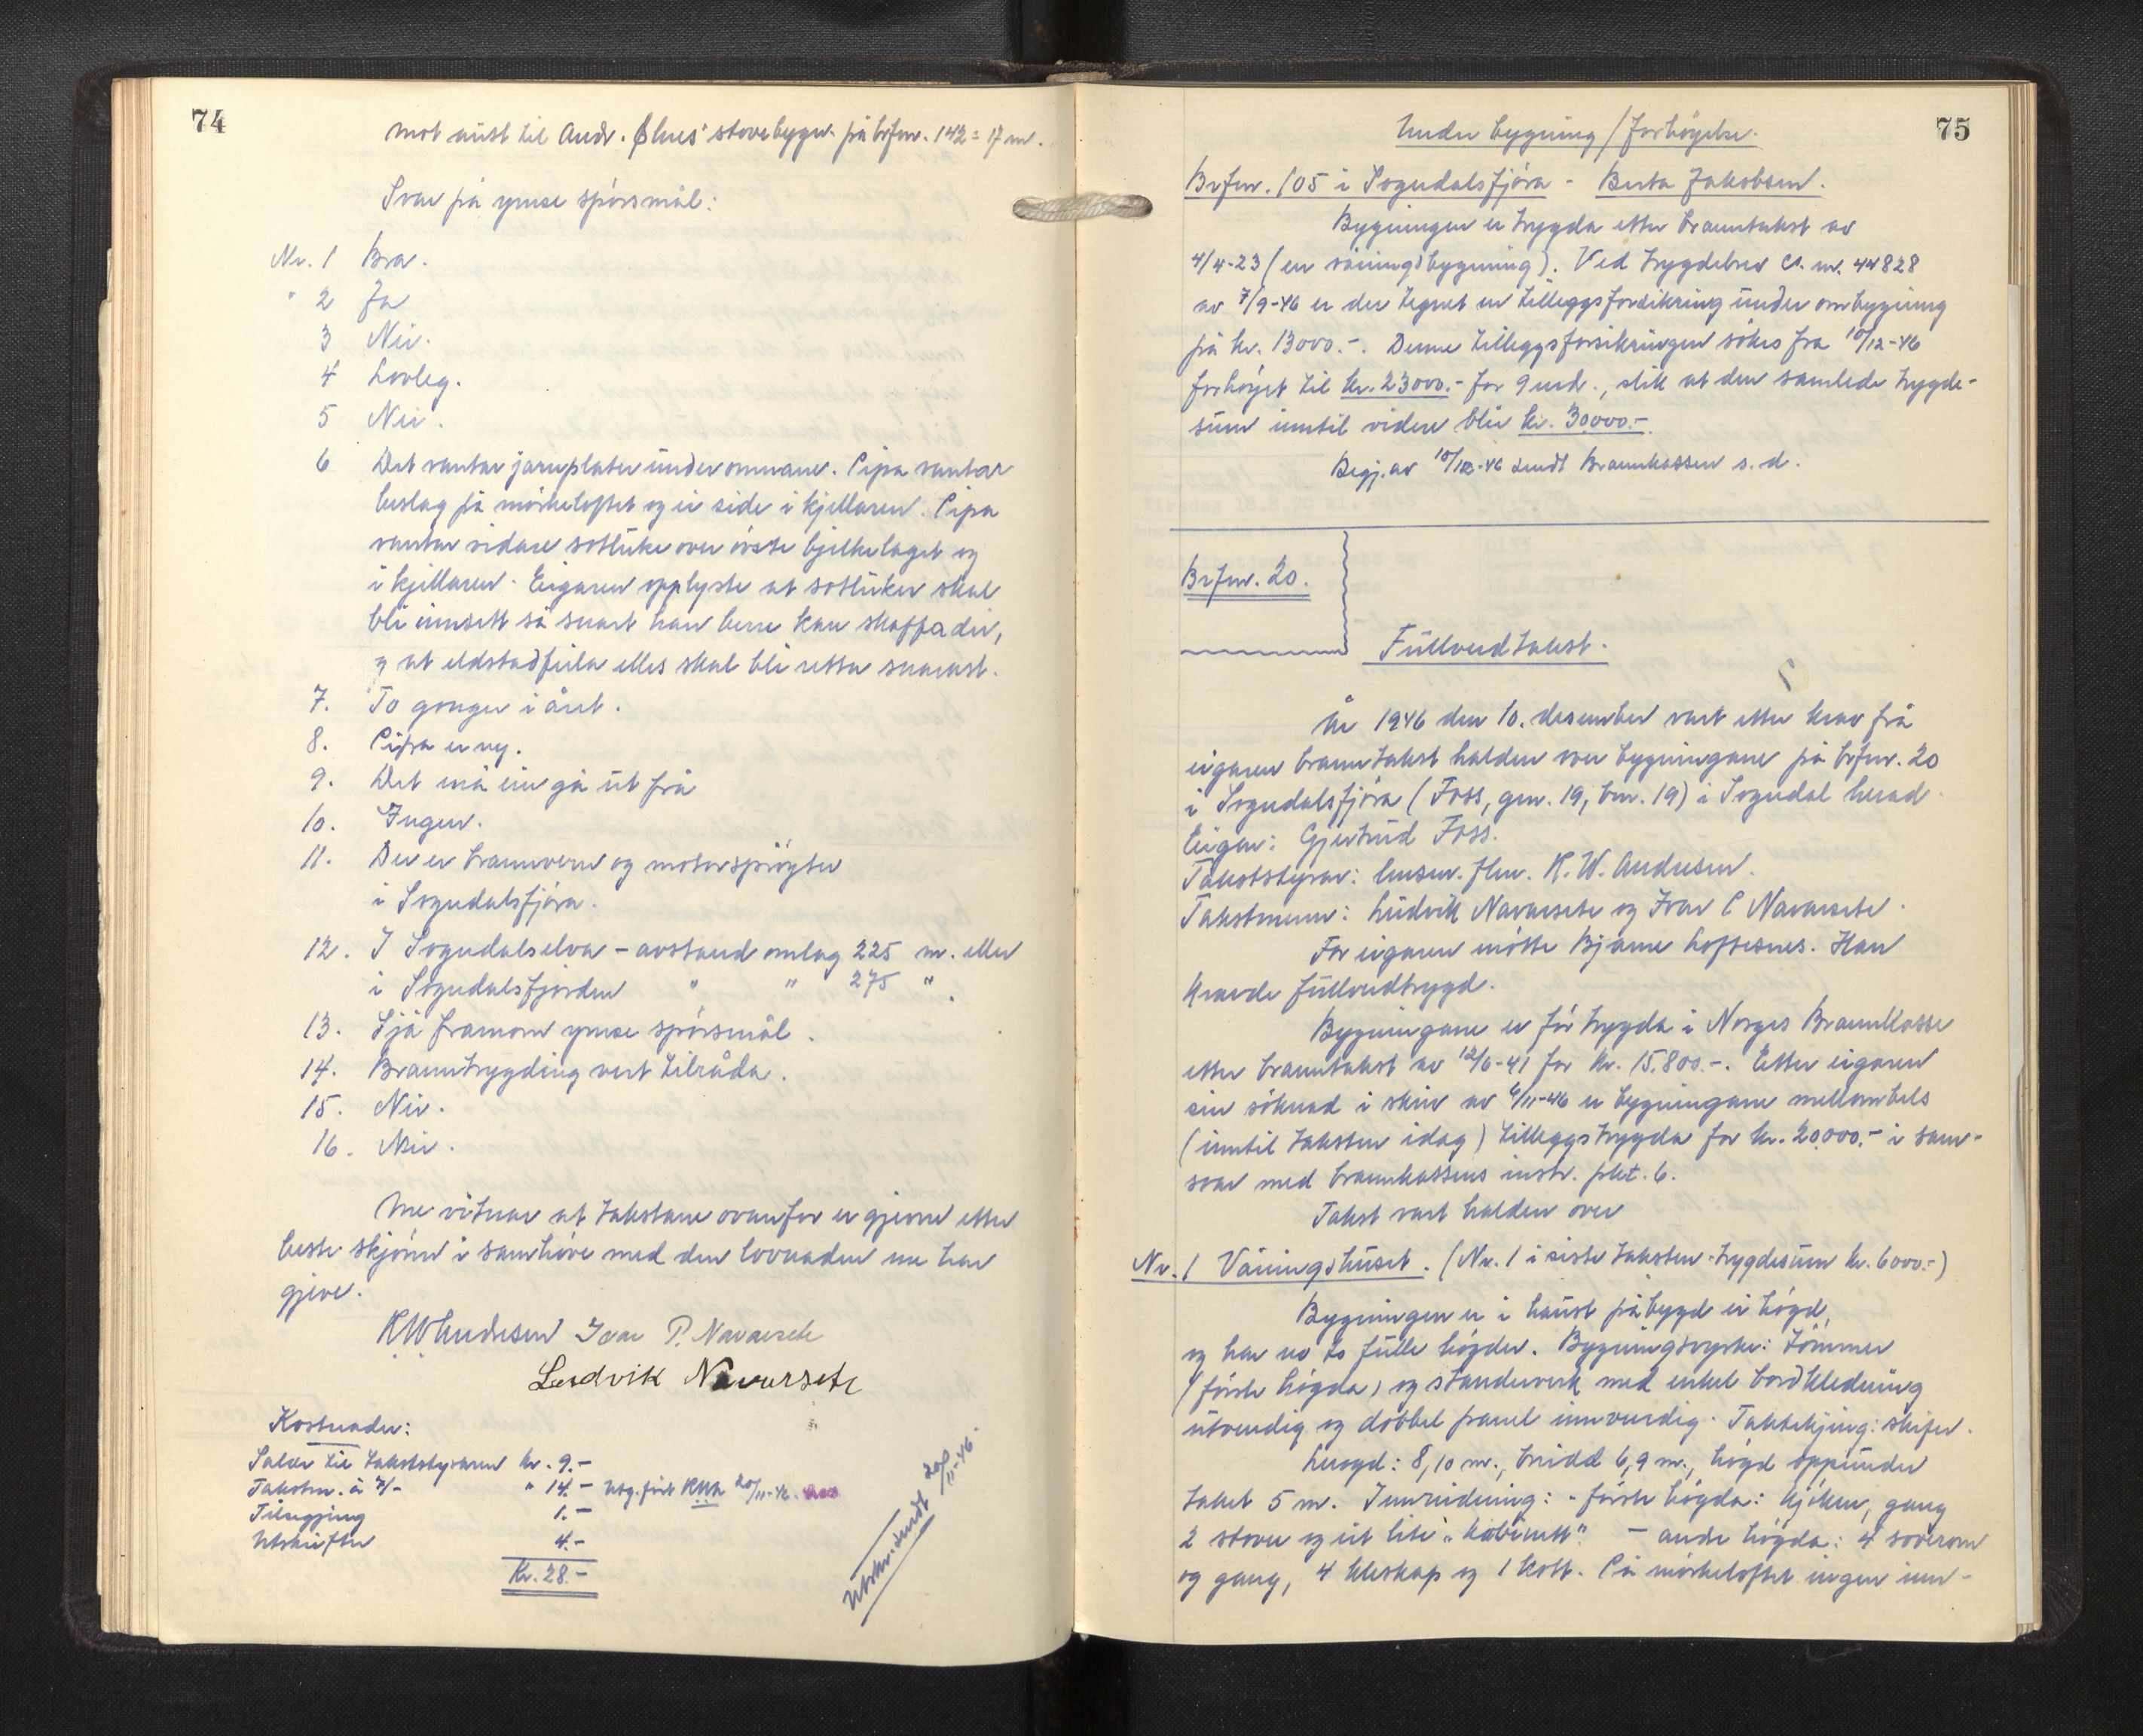 74
mot aust til Andr. Øhus' stovebygn. på brfnr. 142 = 17 m.
Svar på ymse spörsmål:
Nr. 1 Bra.
" 2 Ja
3 Nei.
4 Lovleg.
5 Nei.
6 Det vantar jarnplater under omnane. Pipa vantar
beslag på mörkeloftet og ei side i kjellaren. Pipa
vantar vidare sotluke over övste bjelkelaget og
i kjellaren. Eigaren opplyste at sotluker skal
bli innsett så snart han berre kan skaffa dei,
og at eldstadfeila elles skal bli retta snarast.
7. To gonger i året.
8. Pipa er ny.
9. Det må ein gå ut frå
10. Ingen.
11. Der er brannvern og motorspröyter
i Sogndalsfjöra.
12. I Sogndalselva - avstand omlag 225 m. eller
i Sogndalsfjorden " " 275 ".
13. Sjå framom ymse spörsmål.
14. Branntrygding vert tilråda.
15. Nei.
16. Nei.
Me vitnar at takstane ovanfor er gjevne etter
beste skjönn i samhöve med den lovnaden me har
gjeve.
RWAndresen Ivar P. Navarsete
Ludvik Navarsete
Kostnader:
Salær til takststyraren kr. 9.-
Takstm. à 7/- " 14.- Utg. fört RWA 20/11-46.
Tilsegjing 1.-
Utskrifter 4.-
Kr. 28.-
Utskr. sendt 20/11-46.
75
Under bygning / forhöyelse.
Brfnr. 105 i Sogndalsfjöra - Berta Jakobsen.
Bygningen er trygda etter branntakst av
4/4-23 (en våningsbygning). Ved trygdebrev C. nr. 44828
av 7/9-46 er der tegnet en tilleggsforsikring under ombygning
på kr. 13000.-. Denne tilleggsforsikringen sökes fra 10/12-46
forhöyet til kr. 23000.- for 9 mdr., slik at den samlede trygde-
sum inntil videre blir kr. 30000.-
Begj. av 10/12-46 sendt Brannkassen s.d.
Brfnr. 20.
Fullverdtakst.
År 1946 den 10. desember vart etter krav frå
eigaren branntakst halden over bygningane på brfnr. 20
i Sogndalsfjöra (Foss, gnr. 19, bnr. 19) i Sogndal herad.
Eigar: Gjertrud Foss.
Takststyrar: lensm. flm. R. W. Andresen.
Takstmenn: Ludvik Navarsete og Ivar P Navarsete.
For eigaren mötte Bjarne Loftesnes. Han
kravde fullverdtrygd.
Bygningane er för trygda i Norges Brannkasse
etter branntakst av 12/6-41 for kr. 15.800.-. Etter eigaren
sin söknad i skriv av 6/11-46 er bygningane mellombels
(inntil taksten idag) tilleggstrygda for kr. 20.000.- i sam-
svar med brannkassens instr. pkt. 6.
Takst vart halden over
Nr. 1 Våningshuset. (Nr. 1 i siste taksten - trygdesum kr. 6000.-)
Bygningen er i haust påbygd ei högd,
og har no to fulle högder. Bygningsvyrke: Tömmer
(förste högda) og standerverk med enkel bordkledning
utvendig og dobbel panel innvendig. Taktekjing: skifer.
Lengd: 8,10 m., breidd 6,9 m., högd oppunder
taket 5 m. Innreidning: - förste högda: Kjöken, gang
2 stover og eit lite "kabinett". - andre högda: 4 soverom
og gang, 4 kleskap og 1 kott. På mörkeloftet ingen inn-